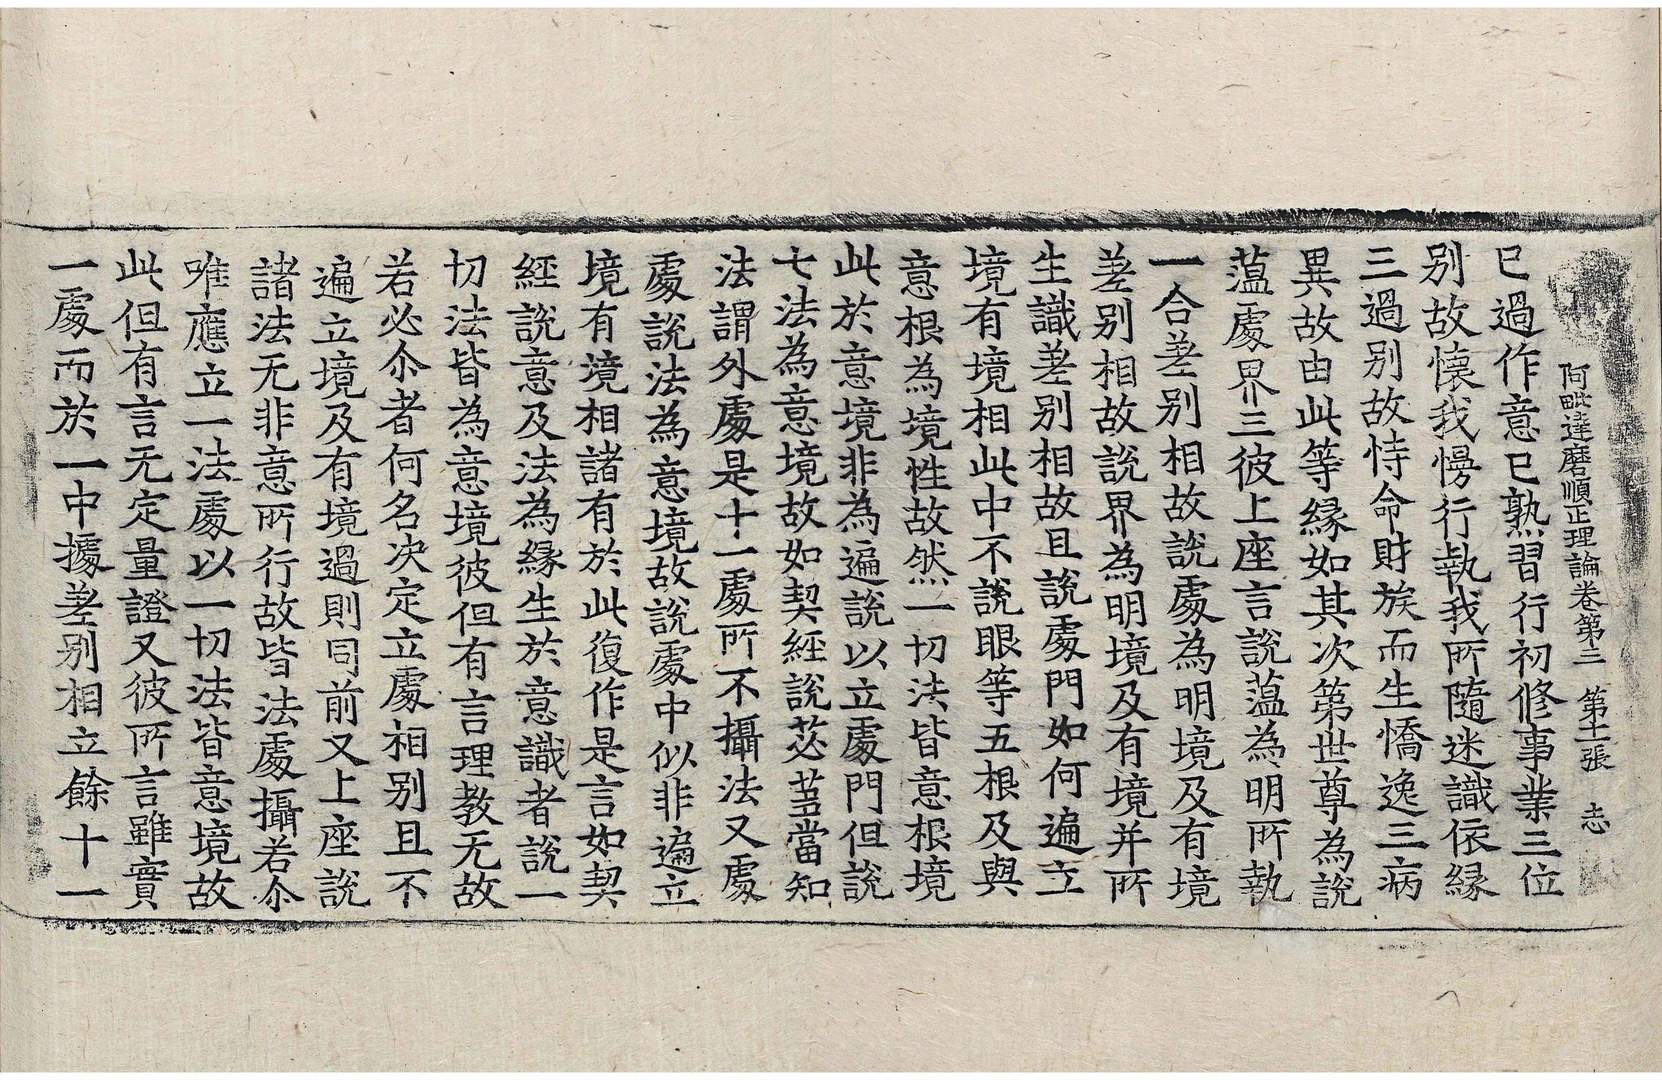 阿毗達磨順正理論卷第三　第十一張　志
已過作意已熟習行初修事業三位
別故懷我慢行執我所隨迷識依緣
三過別故恃命財族而生憍逸三病
異故由此等緣如其次第世尊為說
蘊處界三彼上座言說蘊為明所執
一合差別相故說處為明境及有境
差別相故說界為明境及有境并所
生識差別相故且說處門如何遍立
境有境相此中不說眼等五根及與
意根為境性故然一切法皆意根境
此於意境非為遍說以立處門但說
七法為意境故如契經說苾芻當知
法謂外處是十一處所不攝法又處
處說法為意境故說處中似非遍立
境有境相諸有於此復作是言如契
經說意及法為緣生於意識者說一
切法皆為意境彼但有言理教无故
若必尒者何名決定立處相別且不
遍立境及有境過則同前又上座說
諸法无非意所行故皆法處攝若尒
唯應立一法處以一切法皆意境故
此但有言无定量證又彼所言雖實
一處而於一中據差別相立餘十一